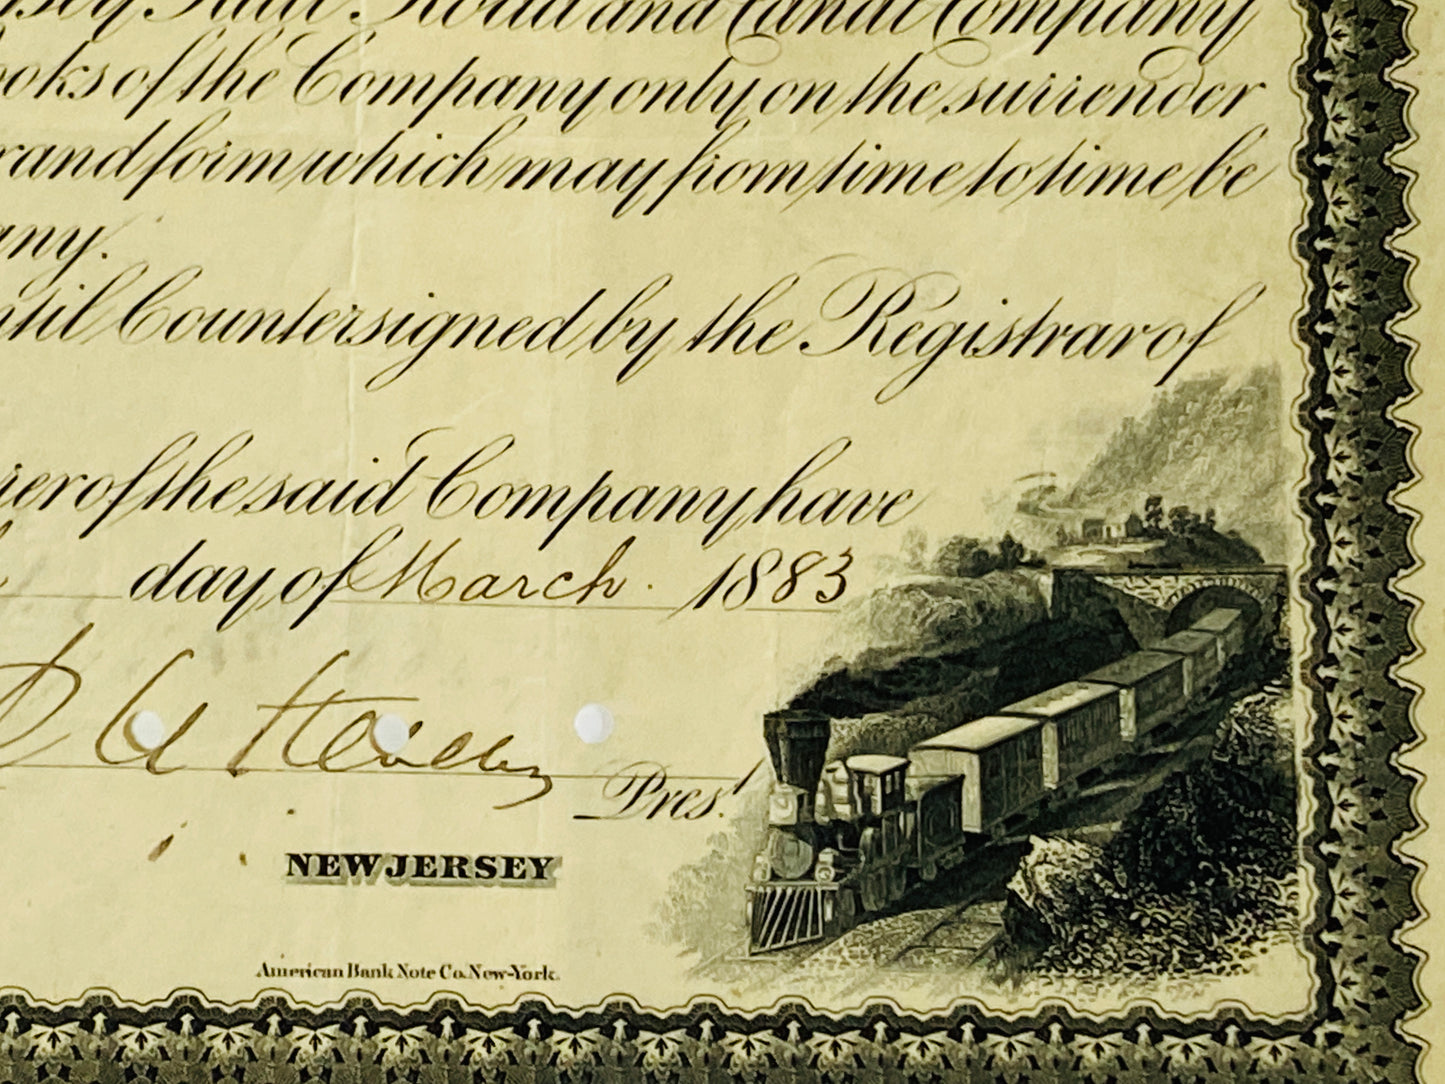 Rail Road and Canal Company
ooks of the Company only on the surrender
and form which may from time to time be
any.
til Countersigned by the Registrar of
er of the said Company have
day of March. 1883
Pres.t
NEW JERSEY
American Bank Note Co. New-York.